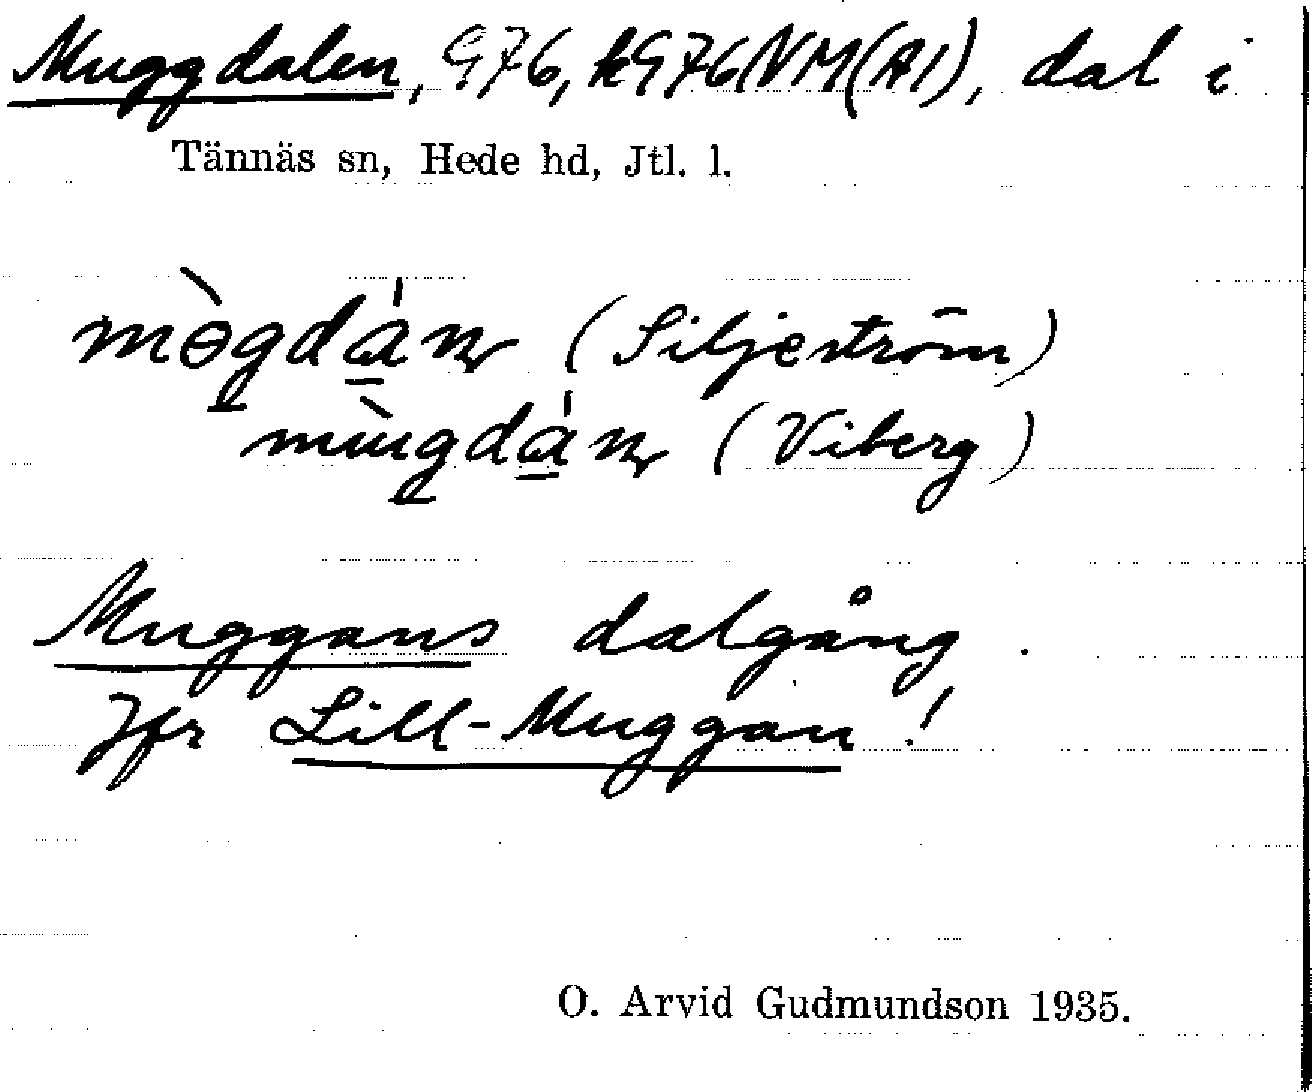 Muggdalen, 976, k976NM(A1), dal i
Tännäs sn, Hede hd, Jtl. l.
mògdán (Siljeström)
mùgdán (Viberg)
Muggans dalgång.
Jfr Lill-Muggan!
O. Arvid Gudmundson 1935.